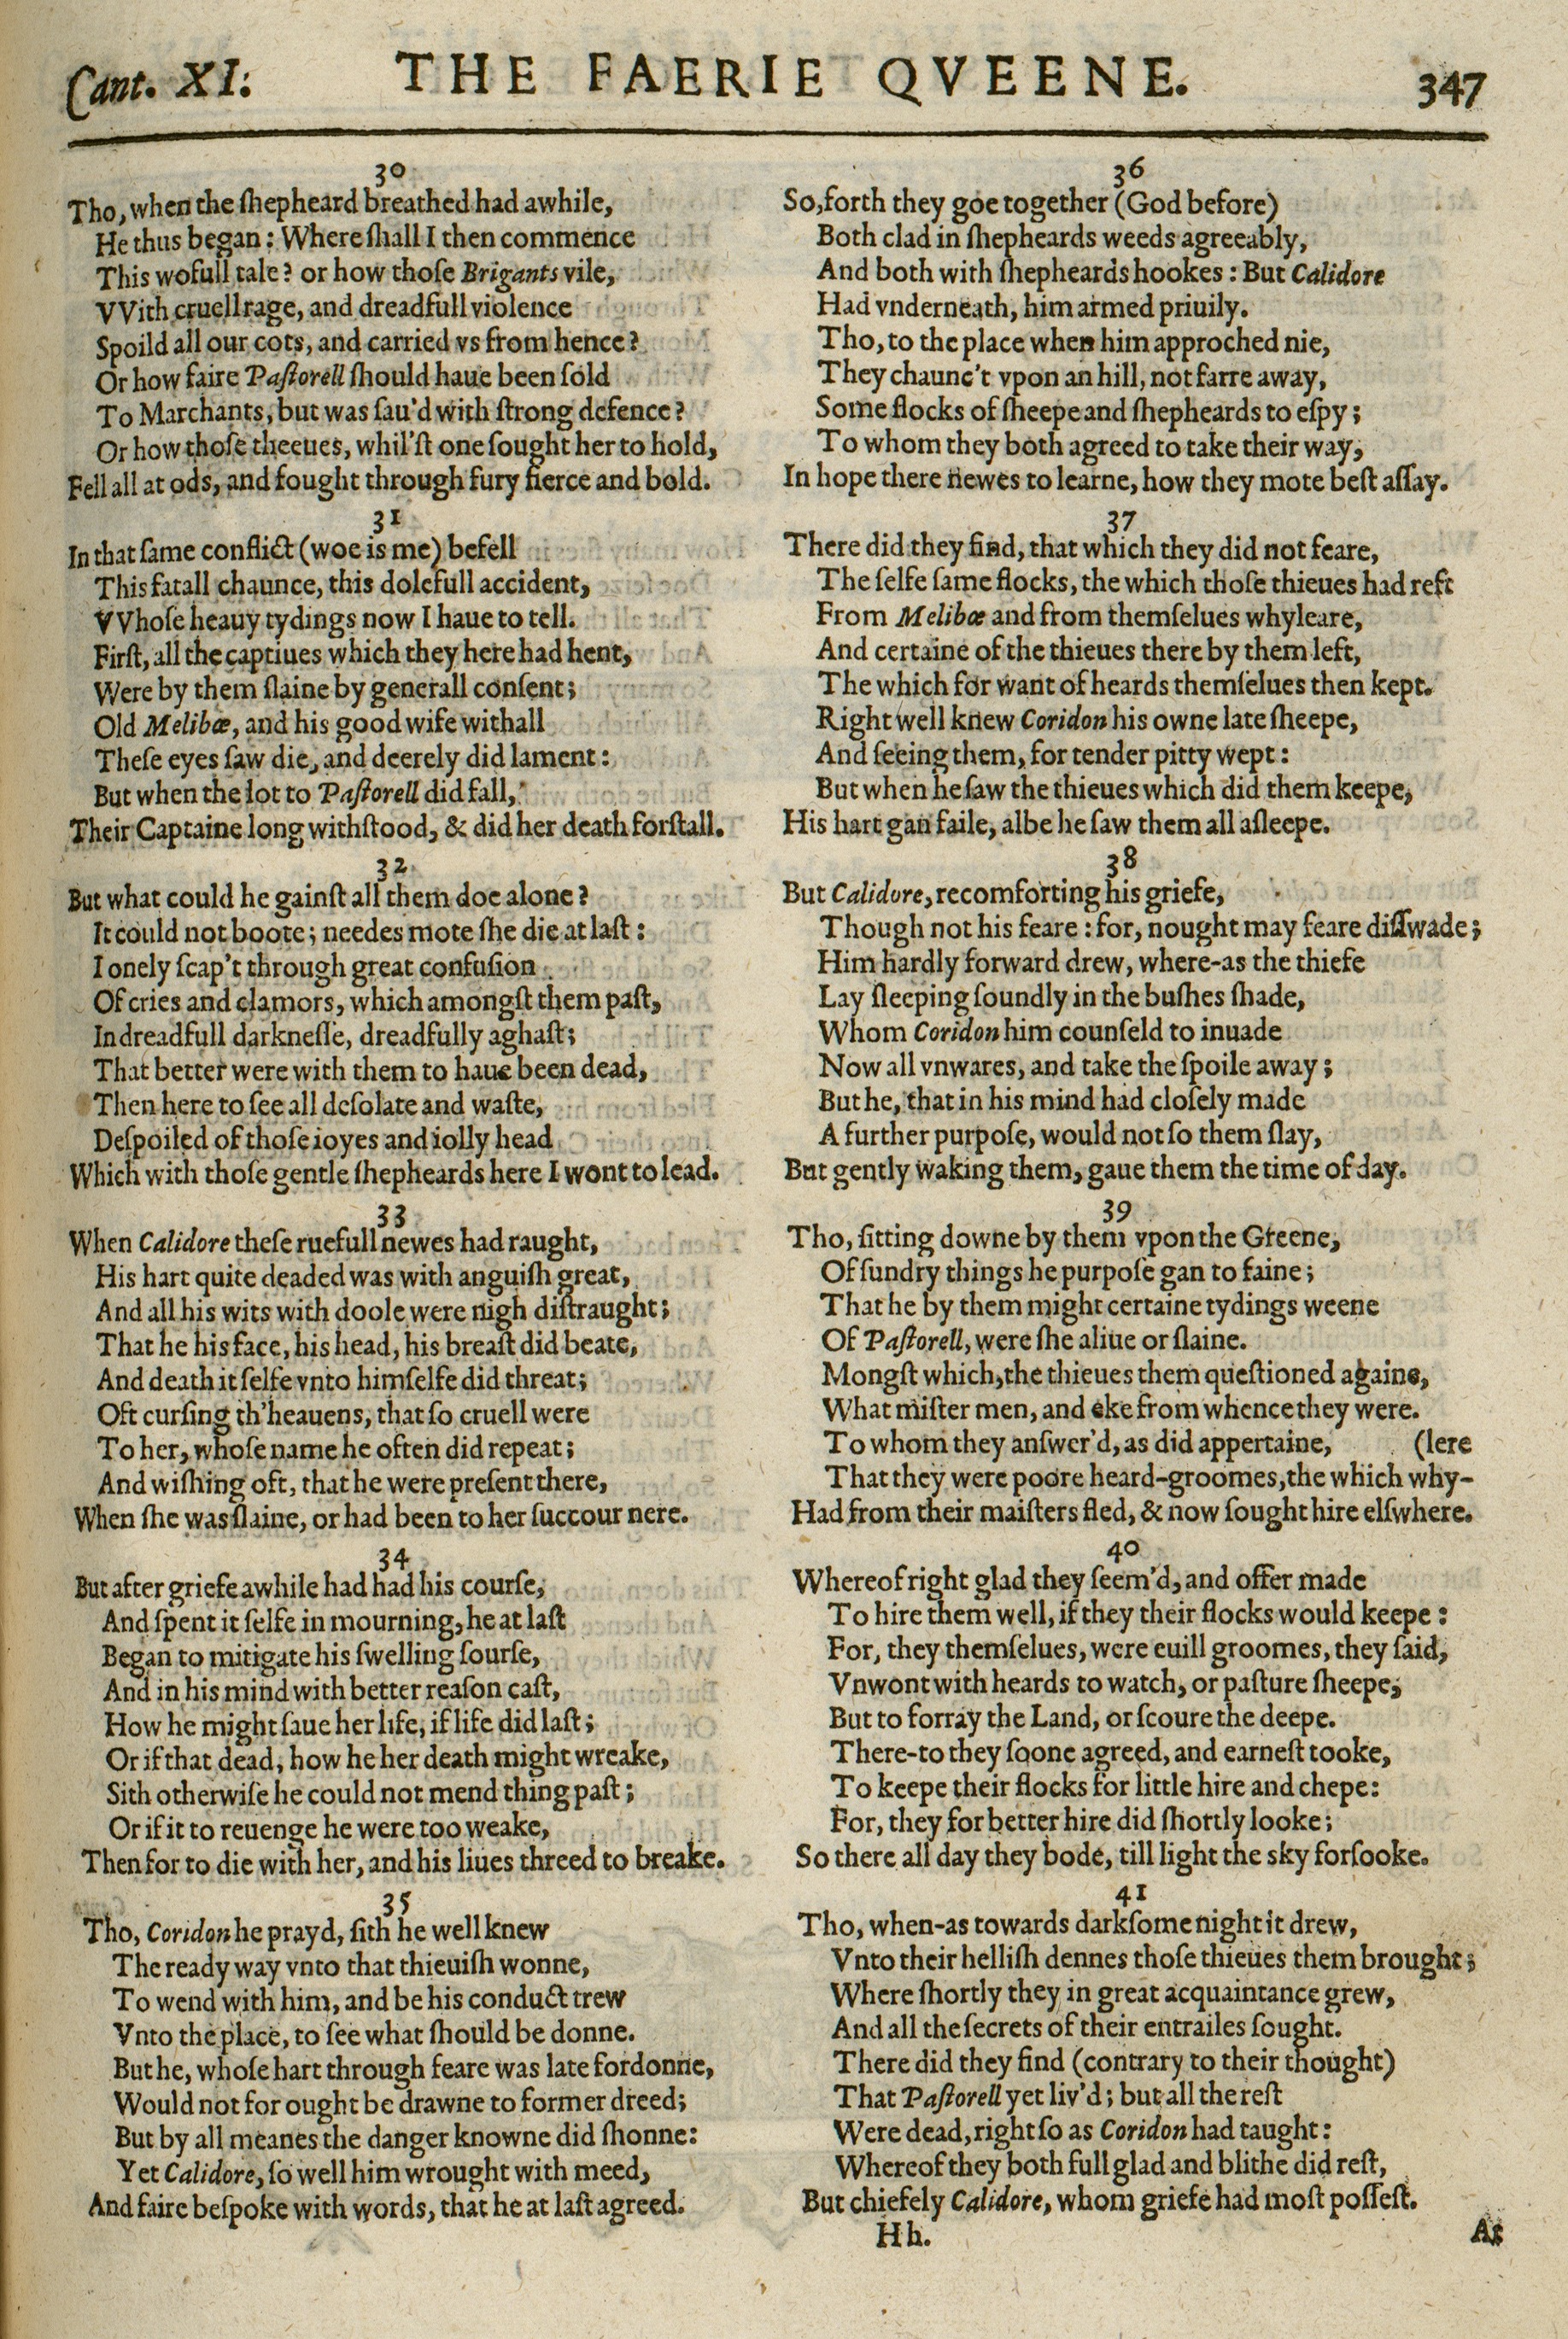 Cant. XI. THE FAERIE QVEENE. 347
30
Tho, when the ſhepheard breathed had awhile,
He thus began: Where ſhall I then commence
This wofull tale? or how thoſe Brigants vile,
VVith cruell rage, and dreadfull violence
Spoild all our cots, and carried vs from hence?
Or how faire Paſtorell ſhould haue been ſold
To Marchants, but was ſau'd with ſtrong defence?
Or how thoſe theeues, whil'ſt one ſought her to hold,
Fell all at ods, and fought through fury fierce and bold.
31
In that ſame conflict (woe is me) befell
This fatall chaunce, this dolefull accident,
VVhoſe heauy tydings now I haue to tell.
Firſt, all the captiues which they here had hent,
Were by them ſlaine by generall conſent;
Old Melibœ, and his good wife withall
Theſe eyes ſaw die, and deerely did lament:
But when the lot to Paſtorell did fall,
Their Captaine long withſtood, & did her death forſtall.
32
But what could he gainſt all them doe alone?
It could not boote; needes mote ſhe die at laſt:
I onely ſcap't through great confuſion
Of cries and clamors, which amongſt them paſt,
In dreadfull darkneſſe, dreadfully aghaſt;
That better were with them to haue been dead,
Then here to ſee all deſolate and waſte,
Deſpoiled of thoſe ioyes and iolly head
Which with thoſe gentle ſhepheards here I wont to lead.
33
When Calidore theſe ruefull newes had raught,
His hart quite deaded was with anguiſh great,
And all his wits with doole were nigh diſtraught;
That he his face, his head, his breaſt did beate,
And death it ſelfe vnto himſelfe did threat;
Oft curſing th'heauens, that ſo cruell were
To her, whoſe name he often did repeat;
And wiſhing oft, that he were preſent there,
When ſhe was ſlaine, or had been to her ſuccour nere.
34
But after griefe awhile had had his courſe,
And ſpent it ſelfe in mourning, he at laſt
Began to mitigate his ſwelling ſourſe,
And in his mind with better reaſon caſt,
How he might ſaue her life, if life did laſt;
Or if that dead, how he her death might wreake,
Sith otherwiſe he could not mend thing paſt;
Or if it to reuenge he were too weake,
Then for to die with her, and his liues threed to breake.
35
Tho, Coridon he prayd, ſith he well knew
The ready way vnto that thieuiſh wonne,
To wend with him, and be his conduct trew
Vnto the place, to ſee what ſhould be donne.
But he, whoſe hart through feare was late fordonne,
Would not for ought be drawne to former dreed;
But by all meanes the danger knowne did ſhonne:
Yet Calidore, ſo well him wrought with meed,
And faire beſpoke with words, that he at laſt agreed.
36
So, forth they goe together (God before)
Both clad in ſhepheards weeds agreeably,
And both with ſhepheards hookes: But Calidore
Had vnderneath, him armed priuily.
Tho, to the place when him approched nie,
They chaunc't vpon an hill, not farre away,
Some flocks of ſheepe and ſhepheards to eſpy;
To whom they both agreed to take their way,
In hope there newes to learne, how they mote beſt aſſay.
37
There did they find, that which they did not feare,
The ſelfe ſame flocks, the which thoſe thieues had reft
From Melibœ and from themſelues whyleare,
And certaine of the thieues there by them left,
The which for want of heards themſelues then kept.
Right well knew Coridon his owne late ſheepe,
And ſeeing them, for tender pitty wept:
But when he ſaw the thieues which did them keepe,
His hart gan faile, albe he ſaw them all aſleepe.
38
But Calidore, recomforting his griefe,
Though not his feare: for, nought may feare diſſwade;
Him hardly forward drew, where-as the thiefe
Lay ſleeping ſoundly in the buſhes ſhade,
Whom Coridon him counſeld to inuade
Now all vnwares, and take the ſpoile away;
But he, that in his mind had cloſely made
A further purpoſe, would not ſo them ſlay,
But gently waking them, gaue them the time of day.
39
Tho, ſitting downe by them vpon the Greene,
Of ſundry things he purpoſe gan to faine;
That he by them might certaine tydings weene
Of Paſtorell, were ſhe aliue or ſlaine.
Mongſt which, the thieues them queſtioned againe,
What miſter men, and eke from whence they were.
To whom they anſwer'd, as did appertaine, (lere
That they were poore heard-groomes, the which why-
Had from their maiſters fled, & now ſought hire elſwhere.
40
Whereof right glad they ſeem'd, and offer made
To hire them well, if they their flocks would keepe:
For, they themſelues, were euill groomes, they ſaid,
Vnwont with heards to watch, or paſture ſheepe,
But to forray the Land, or ſcoure the deepe.
There-to they ſoone agreed, and earneſt tooke,
To keepe their flocks for little hire and chepe:
For, they for better hire did ſhortly looke;
So there all day they bode, till light the sky forſooke.
41
Tho, when-as towards darkſome night it drew,
Vnto their helliſh dennes thoſe thieues them brought;
Where ſhortly they in great acquaintance grew,
And all the ſecrets of their entrailes ſought.
There did they find (contrary to their thought)
That Paſtorell yet liv'd; but all the reſt
Were dead, right ſo as Coridon had taught:
Whereof they both full glad and blithe did reſt,
But chiefely Calidore, whom griefe had moſt poſſeſt.
Hh. As